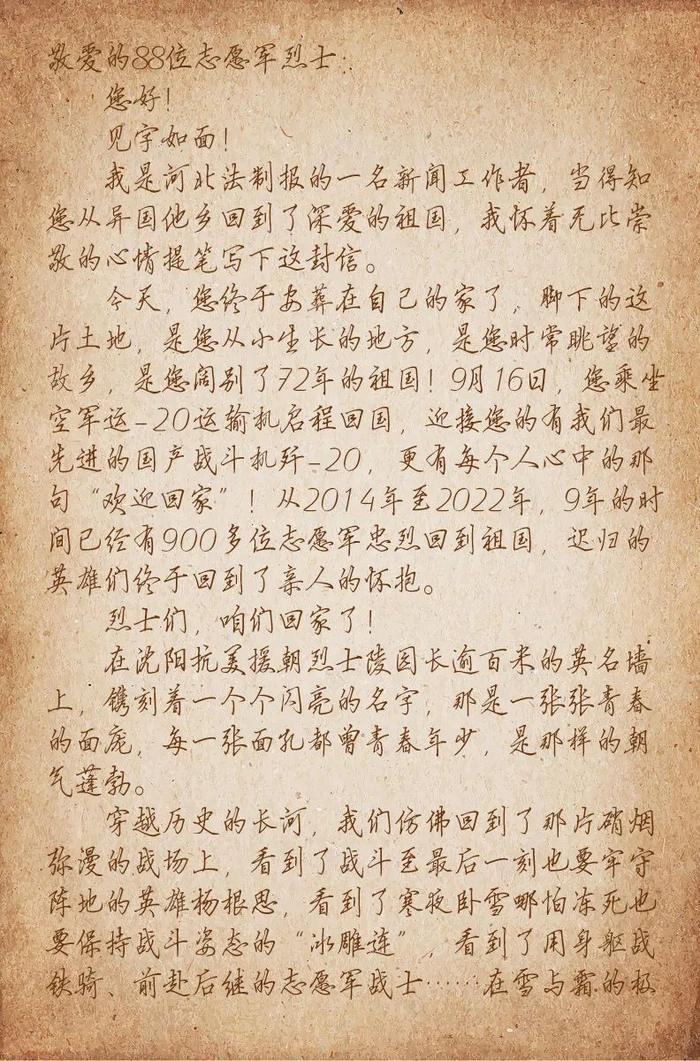 敬爱的88位志愿军烈士：
您好！
见字如面！
我是河北法制报的一名新闻工作者，当得知
您从异国他乡回到了深爱的祖国，我怀着无比崇
敬的心情提笔写下这封信。
今天，您终于安葬在自己的家了，脚下的这
片土地，是您从小生长的地方，是您时常眺望的
故乡，是您阔别了72年的祖国！9月16日，您乘坐
空军运-20运输机启程回国，迎接您的有我们最
先进的国产战斗机歼-20，更有每个人心中的那
句“欢迎回家”！从2014年至2022年，9年的时
间已经有900多位志愿军忠烈回到祖国，迟归的
英雄们终于回到了亲人的怀抱。
烈士们，咱们回家了！
在沈阳抗美援朝烈士陵园长逾百米的英名墙
上，镌刻着一个个闪亮的名字，那是一张张青春
的面庞，每一张面孔都曾青春年少，是那样的朝
气蓬勃。
穿越历史的长河，我们仿佛回到了那片硝烟
弥漫的战场上，看到了战斗至最后一刻也要牢守
阵地的英雄杨根思，看到了寒夜卧雪哪怕冻死也
要保持战斗姿态的“冰雕连”，看到了用身躯战
铁骑、前赴后继的志愿军战士……在雪与霜的极